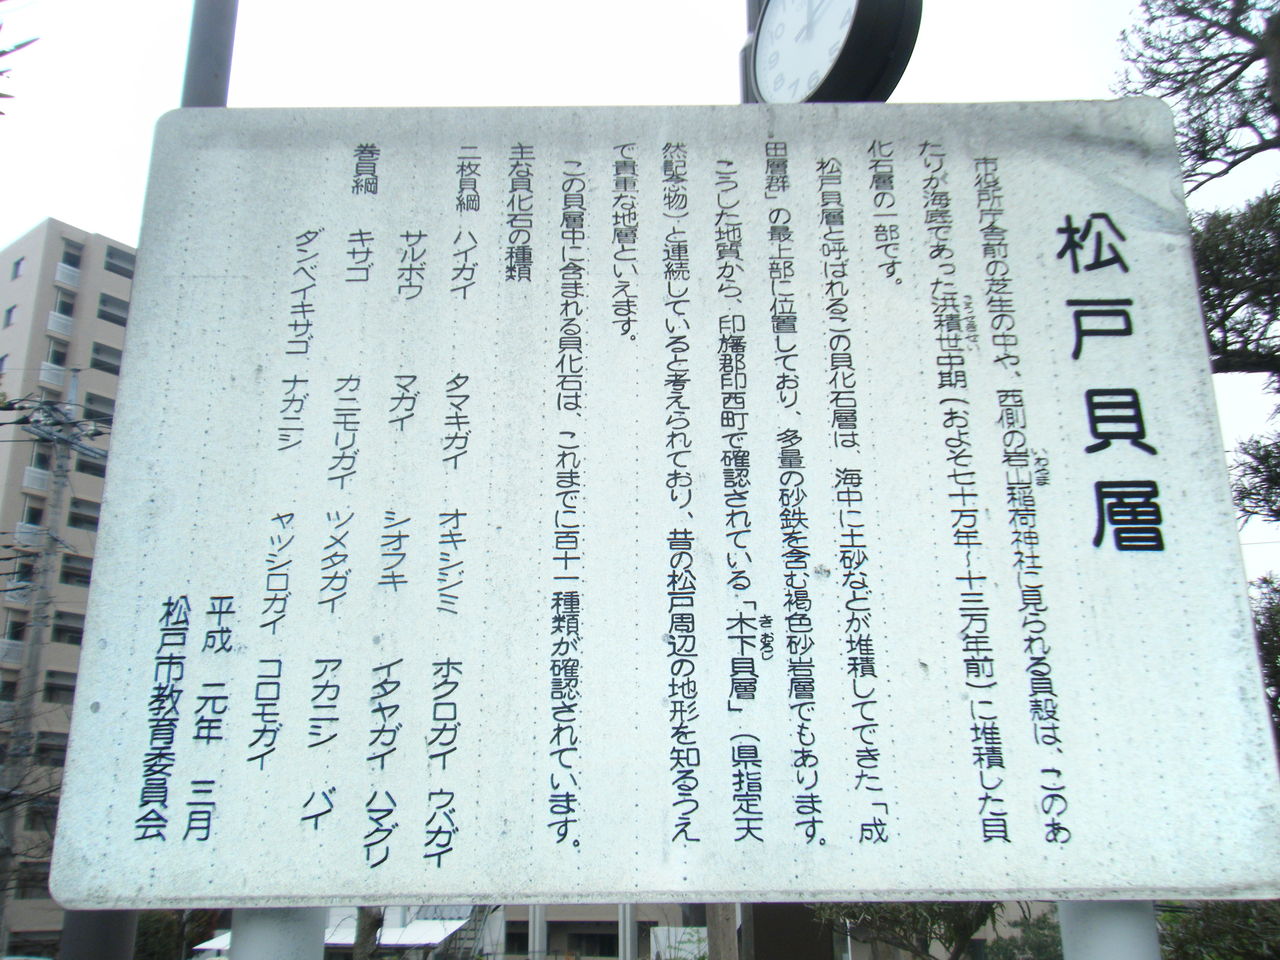 松戸貝層
市役所庁舎前の芝生の中や、西側の岩山稲荷神社に見られる貝殻は、このあ
いわやま
たりが海底であった洪積世中期(およそ七十万年~十三万年前)に堆積した貝
こうせきせい
化石層の一部です。
松戸貝層と呼ばれるこの貝化石層は、海中に土砂などが堆積してできた「成
田層群」の最上部に位置しており、多量の砂鉄を含む褐色砂岩層でもあります。
こうした地質から、印旛郡印西町で確認されている「木下貝層」(県指定天
きおろし
然記念物)と連続していると考えられており、昔の松戸周辺の地形を知るうえ
で貴重な地層といえます。
この貝層中に含まれる貝化石は、これまでに百十一種類が確認されています。
主な貝化石の種類
二枚貝綱 ハイガイ タマキガイ オキシジミ ホクロガイ ウバガイ
サルボウ マガイ シオフキ イタヤガイ ハマグリ
巻貝綱 キサゴ カニモリガイ ツメタガイ アカニシ バイ
ダンベイキサゴ ナガニシ ヤツシロガイ コロモガイ
平成 元年 三月
松戸市教育委員会
10
9
8
7
6
5
4